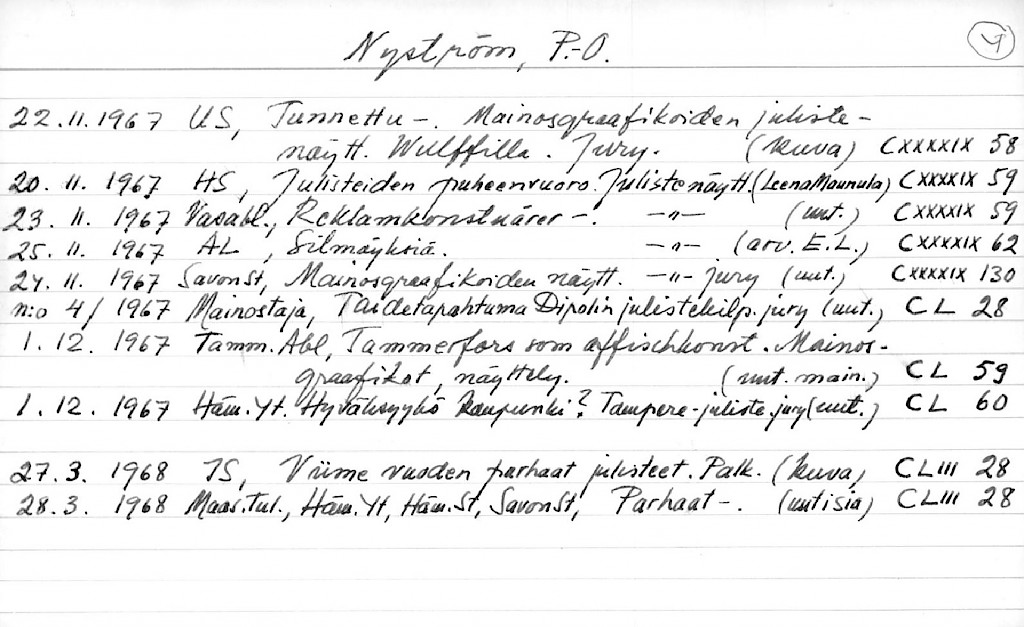 Nyström, P.-O. 4
22.11.1967 US, Tunnettu -. Mainosgraafikoiden juliste-
näytt. Wulffilla. Jury. (kuva) CXXXXIX 58
20.11.1967 HS, Julisteiden puheenvuoro. Julistenäytt. (Leena Maunula) CXXXXIX 59
23.11.1967 Vasabl., Reklamkonstnärer -. -"- (uut.) CXXXXIX 59
25.11.1967 AL, Silmäyksiä. -"- (arv. E.L.) CXXXXIX 62
24.11.1967 SavonSt, Mainosgraafikoiden näytt. -"- jury (uut.) CXXXXIX 130
n:o 4/1967 Mainostaja, Taidetapahtuma Dipolin julistekilp. jury (uut.) CL 28
1.12.1967 Tamm.Abl, Tammerfors som affischkonst. Mainos-
graafikot, näyttely. (uut. main.) CL 59
1.12.1967 Häm.Yt. Hyväksyykö kaupunki? Tampere-juliste. jury (uut.) CL 60
27.3.1968 IS, Viime vuoden parhaat julisteet. Palk. (kuva) CLIII 28
28.3.1968 Maas.Tul., Häm.Yt, Häm.St, SavonSt, Parhaat -. (uutisia) CLIII 28